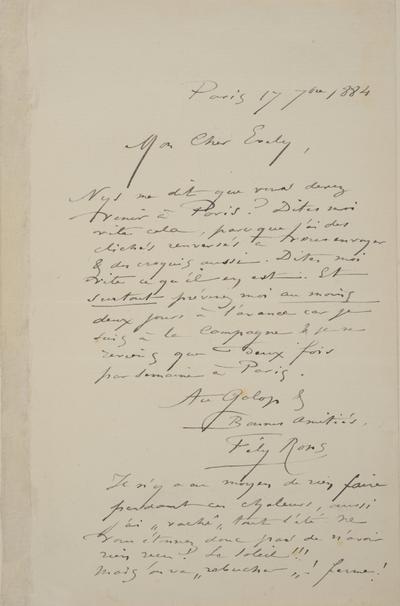 Paris 17 7bre 1884
Mon Cher Evely,
Nys me dit que vous devez
venir à Paris? Dites moi
vite cela, parce que j'ai des
clichés renversés à vous envoyer
& des croquis aussi. Dites moi
vite ce qu'il en est. Et
surtout prévenez moi au moins
deux jours à l'avance car je
suis à la Campagne & je ne
reviens que deux fois
par semaine à Paris.
Au Galop &
Bonnes Amitiés,
Fély Rops
Il n'y a au moyen de rien faire
pendant ces chaleurs, aussi
j'ai „vaché„ tout l'été ne
vous étonnez donc pas de n'avoir
rien reçu! Le Soleil!!!
Mais on va „rabucher„! ferme!